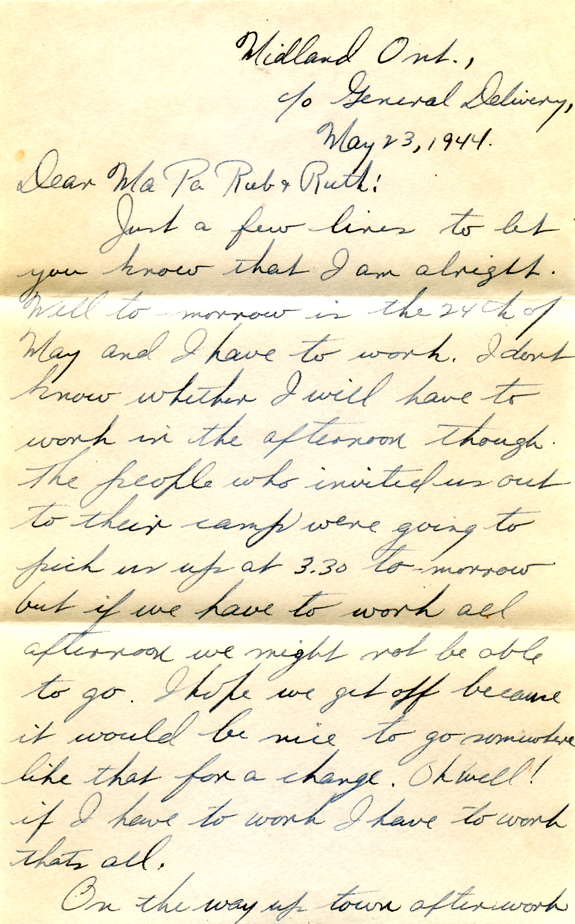 Midland Ont.,
c/o General Delivery,
May 23, 1944.
Dear Ma Pa Rub & Ruth!
Just a few lines to let
you know that I am alright.
Well to-morrow is the 24th of
May and I have to work. I dont
know whether I will have to
work in the afternoon though.
The people who invited us out
to their camp were going to
pick us up at 3.30 to-morrow
but if we have to work all
afternoon we might not be able
to go. I hope we get off because
it would be nice to go somewhere
like that for a change. Oh well!
if I have to work I have to work
thats all.
On the way up town after work